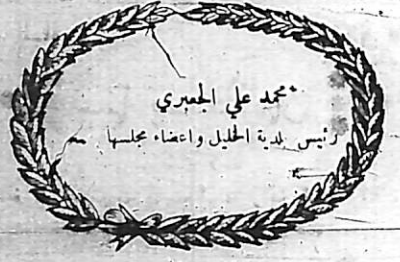 محمد علي الجعبري
رئيس بلدية الخليل واعضاء مجلسها